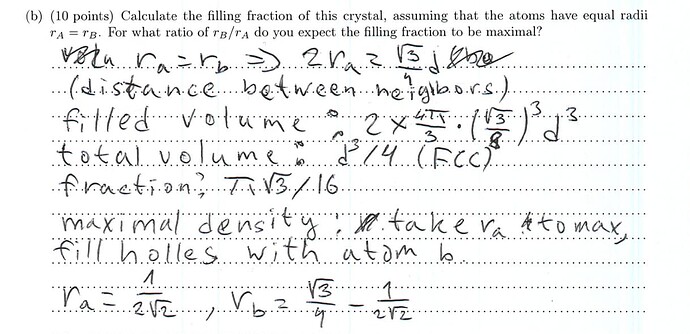 (b) (10 points) Calculate the filling fraction of this crystal, assuming that the atoms have equal radii
r_A = r_B. For what ratio of r_B/r_A do you expect the filling fraction to be maximal?
r_a = r_b => 2r_a = √3/4 d
(distance between neigbors)
filled volume : 2 × 4π/3 · (√3/8)^3 d^3
total volume : d^3/4 (FCC)
fraction: π√3/16
maximal density: take r_a to max,
fill holles with atom b
r_a = 1/2√2 , r_b = √3/4 - 1/2√2